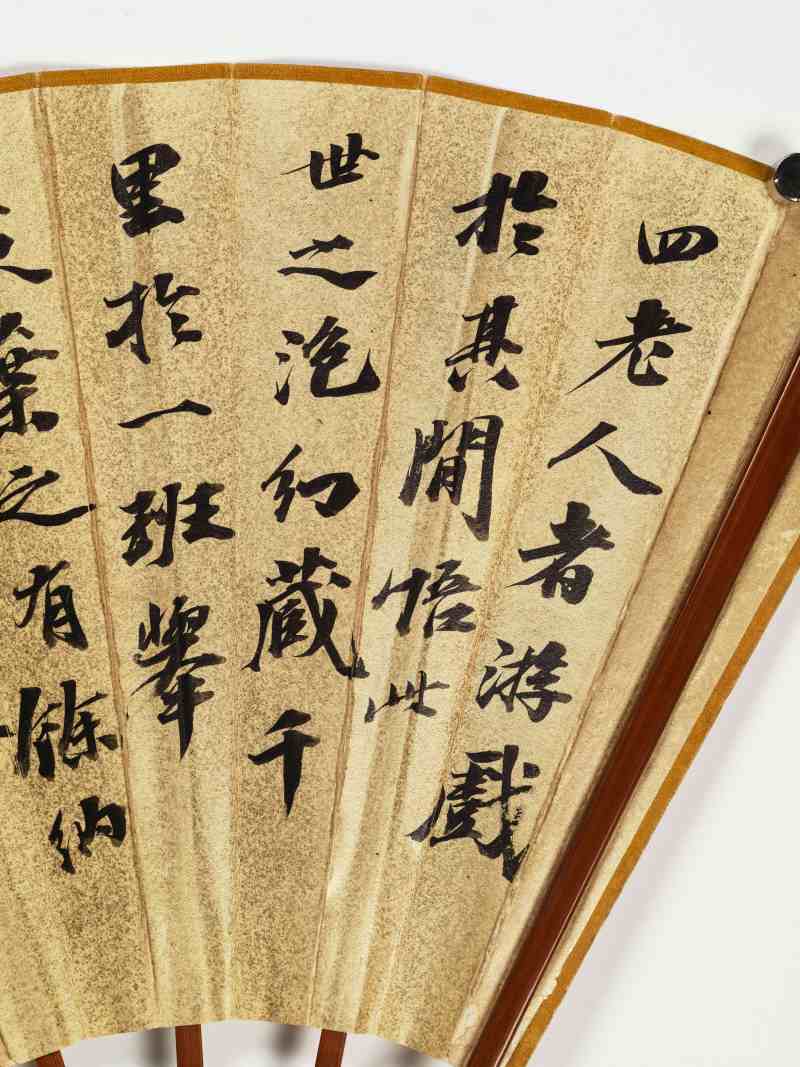 四老人者游戲
於其閒悟此
世之泡幻藏千
里於一班舉
葉之有餘納